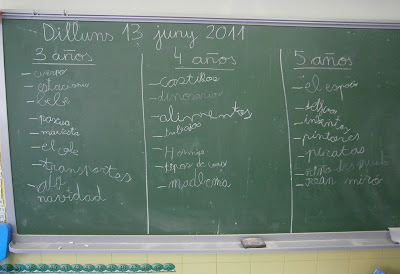 Dilluns 13 juny 2011
3 años
cuerpo
estaciones
bebé
pascua
marieta
el cole
transportes
navidad
4 años
castillos
dinosaurios
alimentos
trabajos
Hormiga
tipos de casas
madrema
5 años
el espacio
selva
inventos
pintores
piratas
Joan miró